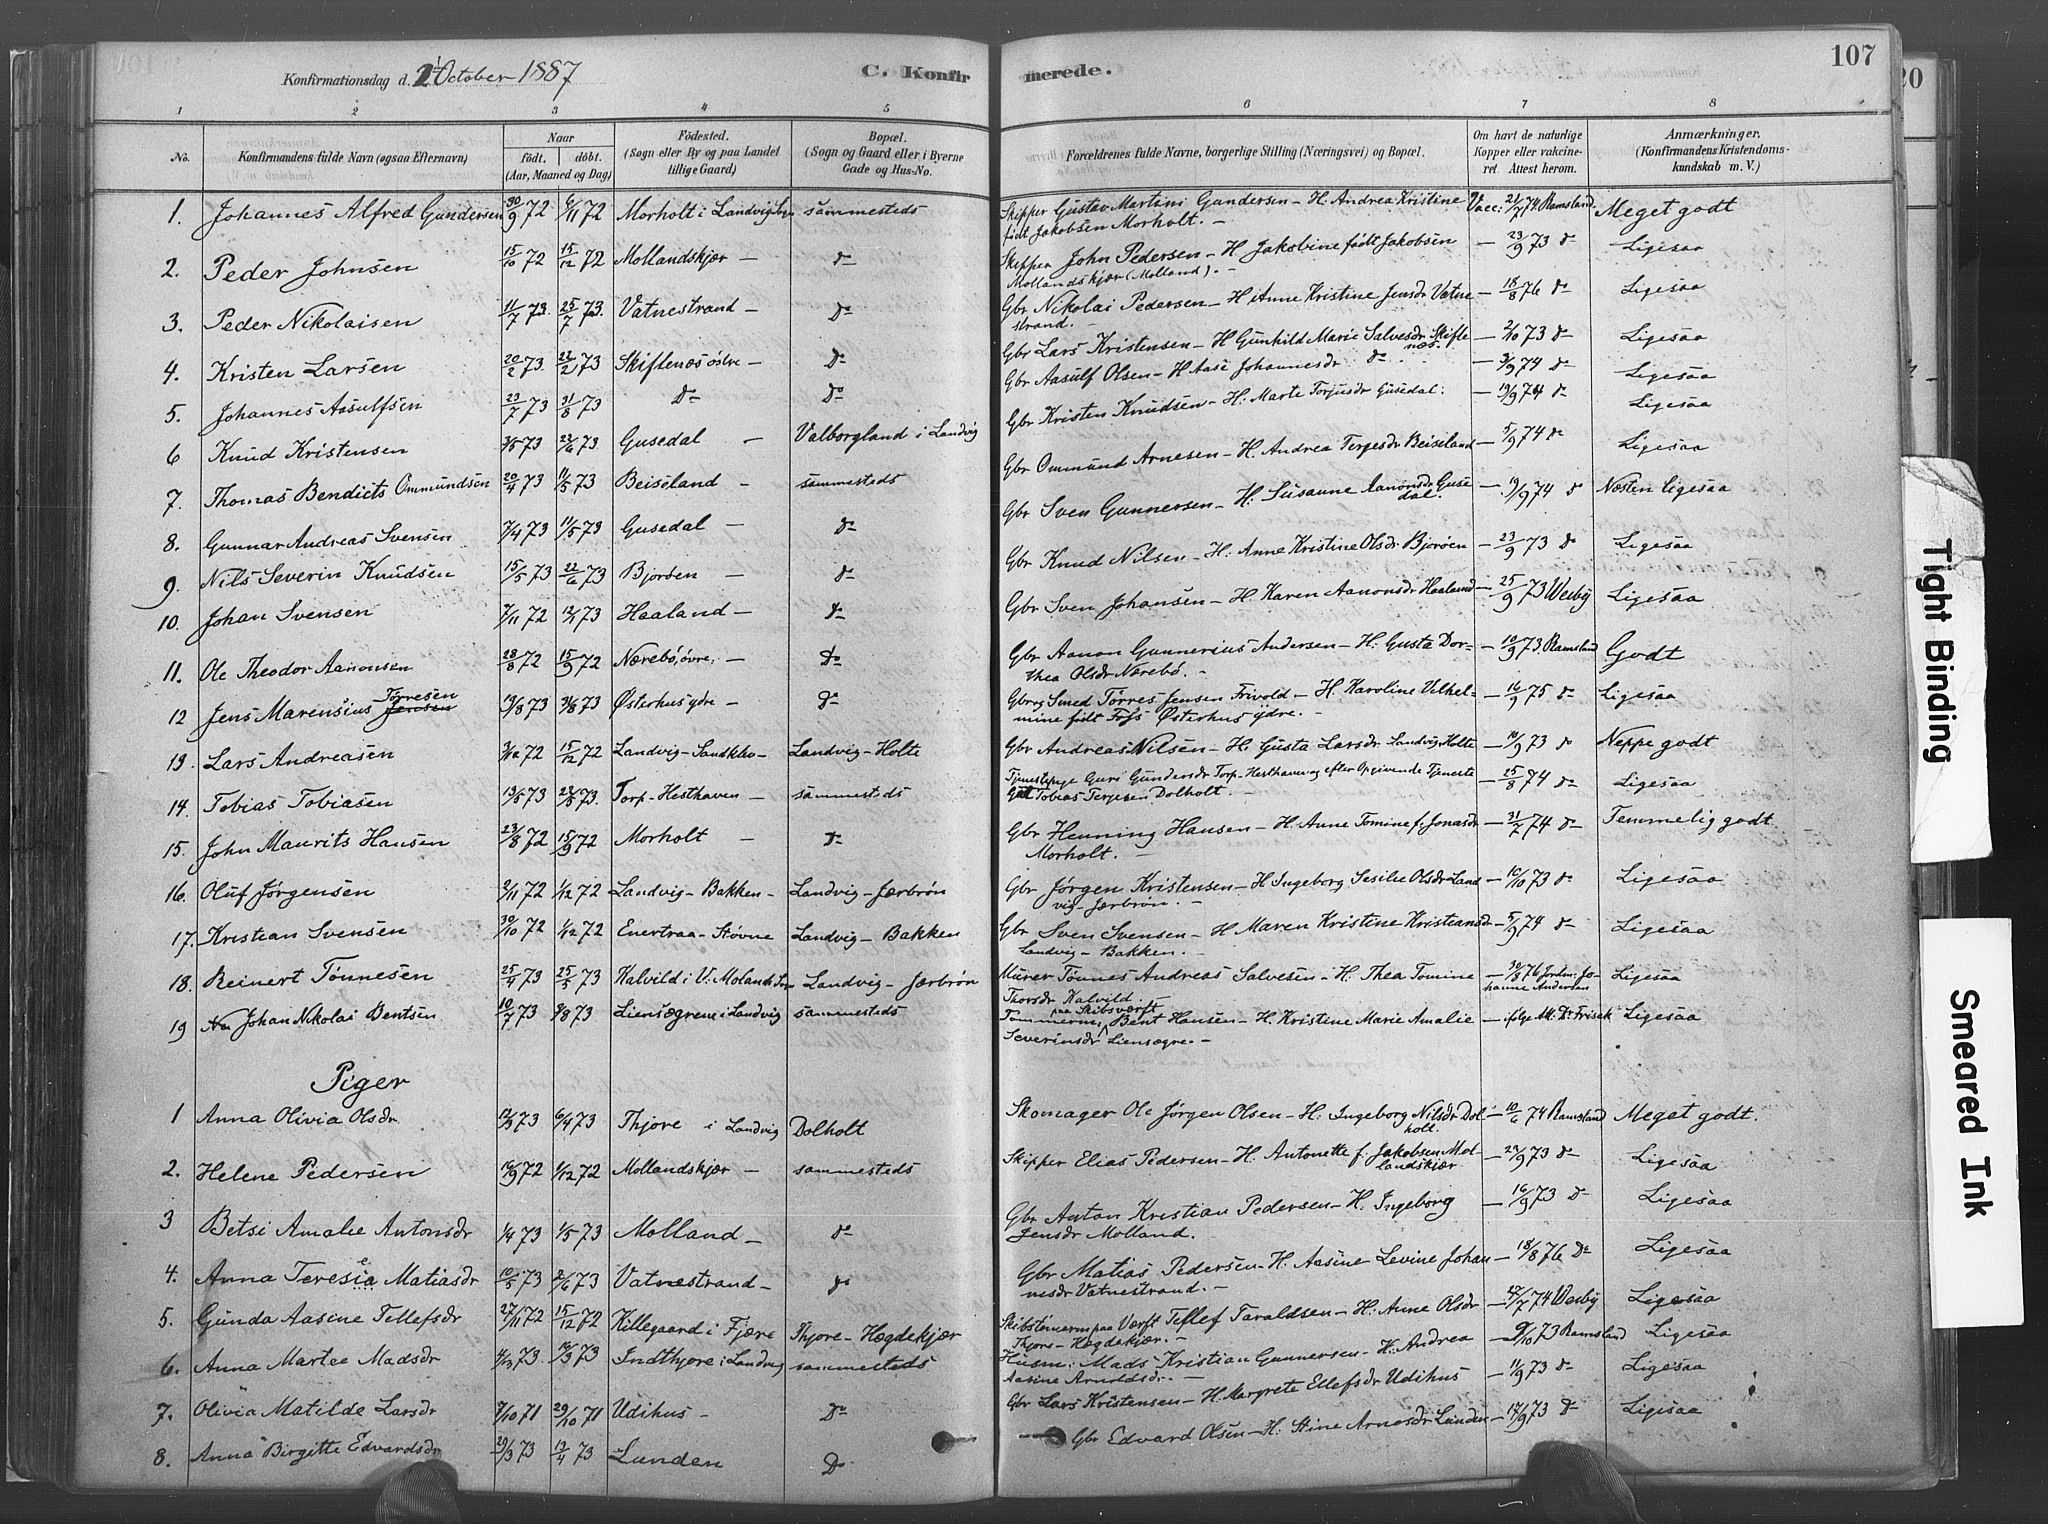 107
20
Konfirmationsdag d. 2 October 1887
C. Konfirmerede.
1 2 3 4 5 6 7 8
No. Konfirmandens fulde Navn (ogsaa Efternavn) Naar født. døbt. (Aar, Maaned og Dag) Fødested. (Sogn eller By og paa Landet tillige Gaard) Bopæl. (Sogn og Gaard eller i Byerne Gade og Hus-No. Forældrenes fulde Navne, borgerlige Stilling (Næringsvei) og Bopæl. Om havt de naturlige Kopper eller vaccineret. Attest herom. Anmærkninger. (Konfirmandens Kristendomskundskab m. V.)
1. Johannes Alfred Gundersen 30/9 72 6/11 72 Morholt i Landvig Sogn sammesteds Skipper Gustav Martini Gundersen – H. Andrea Kristine født Jakobsen Morholt. Vacc: 21/7 74 Ramsland. Meget godt
2. Peder Johnsen 15/10 72 15/12 72 Mollandskjær – do Skipper John Pedersen – H. Jakobine født Jakobsen Mollandskjær (Molland). – – 23/9 73 do Ligesaa
3. Peder Nikolaisen 11/7 73 25/7 73 Vatnestrand – Do Gbr Nikolai Pedersen – H. Anne Kristine Jensdr Vatnestrand. – – 18/8 76 do Ligesaa
4. Kristen Larsen 20/2 73 22/2 73 Skiftenæs østre – Do Gbr Lars Kristensen – H Gunhild Marie Salvesdr Skiftenæs. – 2/10 73 do Ligesaa
5. Johannes Aasulfsen 23/7 73 31/8 73 Do Do Gbr Aasulf Olsen – H Aase Johannesdr do – 3/9 74 do Ligesaa
6 Knud Kristensen 3/5 73 22/6 73 Gusedal – Valborgland i Landvig Gbr Kristen Knudsen – H. Marte Torjusdr Gusedal. – 19/9 74 do Ligesaa
7. Thomas Bendicts Ommundsen 20/4 73 11/5 73 Beiseland – sammesteds Gbr Ommund Arnesen – H. Andrea Terjesdr Beiseland – 5/9 74 do Ligesaa
8. Gunnar Andreas Svensen 7/4 73 11/5 73 Gusedal – do Gbr Sven Gunnersen – H. Susanne Aanonsdr Gusedal. – 19/9 74 do Næsten ligesaa
9. Nils Severin Knudsen 15/5 73 22/6 73 Bjorøen – do Gbr Knud Nilsen – H. Anne Kristine Olsdr Bjorøen – 23/9 73 do Ligesaa
10. Johan Svensen 7/11 72 12/1 73 Haaland – do Gbr Sven Johansen – H. Karen Aanonsdr Haaland – 25/9 73 Wesby Ligesaa
11. Ole Theodor Aanonsen 28/8 72 15/9 72 Nærebø, øvre, – Do Gbr Aanon Gunnerius Andersen – H. Gusta Dorthea Olsdr Nærebø. – – 10/9 73. Ramsland Godt
12 Jens Marensius Jensen Tørresen 13/8 73 31/8 73 Østerhus ydre – do Gbr og Smed Tørres Jensen Frivold – H. Karoline Vilhelmine født Friis Østerhus ydre. – – 16/9 75 do Ligesaa
13. Lars Andreasen 3/12 72 15/12 72 Landvig – Sandkhe – Landvig – Holte Gbr Andreas Nilsen – H. Gusta Larsdr Landvig Holte – 10/9 73 do Neppe godt
14. Tobias Tobiasen 13/5 73 22/5 73. Torp – Hesthaven – sammesteds Tjenestepige Guri Gundersdr Torp – Hesthaven og efter Opgivende Tjenestegut Tobias Terjesen Dolholt. – – 25/8 74 do Ligesaa
15. John Maurits Hansen 23/8 72 15/9 72 Morholt – do Gbr Henning Hansen – H. Anne Tomine f. Jonasdr Morholt. – – 31/7 74 do – Temmelig godt
16. Oluf Jørgensen 2/11 72 1/12 72 Landvig – Bakken – Landvig – Jærbrøn Gbr Jørgen Kristensen – H Ingeborg Sesilie Olsdr Landvig – Jærbrøn. – – 10/10 73 do Ligesaa
17. Kristian Svensen 30/10 72 1/12 72 Enertraa – Støvne Landvig – Bakken Gbr Sven Svensen – H Maren Kristine Kristiansdr Landvig – Bakken. – – 5/9 74 do Ligesaa
18. Reinert Tønnesen 25/4 73 25/5 73 Kalvild i V. Molands Sogn Landvig – Jærbrøn Murer Tønnes Andreas Salvesen – H. Thea Tomine Thorsdr Kalvild. – 30/8 76 Jordem: Johanne Andersen Ligesaa
19 Johan Nikolai Bentsen 10/7 73 3/8 73 Liensægrene i Landvig sammesteds Tømmerm. paa Skibsværft Bent Hansen – H. Kristine Marie Amalie Severinsdr Liensægre. – – ifølge Att. Dr Frisek Ligesaa
Piger
1 Anna Olivia Olsdr 12/3 73 6/4 73 Thjore i Landvig Dolholt Skomager Ole Jørgen Olsen – H. Ingeborg Nilsdr Dolholt. – 10/6 74 Ramsland Meget godt.
2. Helene Pedersen 16/9 72 1/12 72 Mollandskjær – sammesteds Skipper Elias Pedersen – H. Antonette f. Jakobsen Mollandskjær – 27/9 73 do Ligesaa
3 Betsi Amalie Antonsdr 1/4 73 1/5 73 Molland – do Gbr Anton Kristian Pedersen – H. Ingeborg Jensdr Molland. – 16/9 73 do Ligesaa
4. Anna Teresia Matiasdr 10/5 73 2/6 73 Vatnestrand – do Gbr Matias Pedersen – H. Aasine Levine Johannesdr Vatnestrand. – – 18/8 76 Do Ligesaa
5. Gunda Aasine Tellefsdr 27/11 72 15/12 72 Killegaard i Fjære Thjore – Hægdekjær Skibstømerm paa Værft Tellef Taraldsen – H. Anne Olsdr Thjore – Hægdekjær. – – 27/7 74 Wesby Ligesaa
6. Anna Martee Madsdr 4/3 73. 16/3 73 Indthjore i Landvig sammesteds Husm: Mads Kristian Gunnersen – H. Andrea Aasine Arnoldsdr. – – 9/10 73 Ramsland Ligesaa
7. Olivia Matilde Larsdr 7/10 71 29/10 71 Udihus – Do Gbr Lars Kristensen – H. Margrete Ellefsdr Udihus – 11/9 73 do Ligesaa
8. Anna Birgitte Edvardsdr 29/3 73 13/4 73 Lunden Do Gbr Edvard Olsen – H. Stine Arnesdr Lunden – 17/9 73 Do Ligesaa
Tight Binding
Smeared Ink